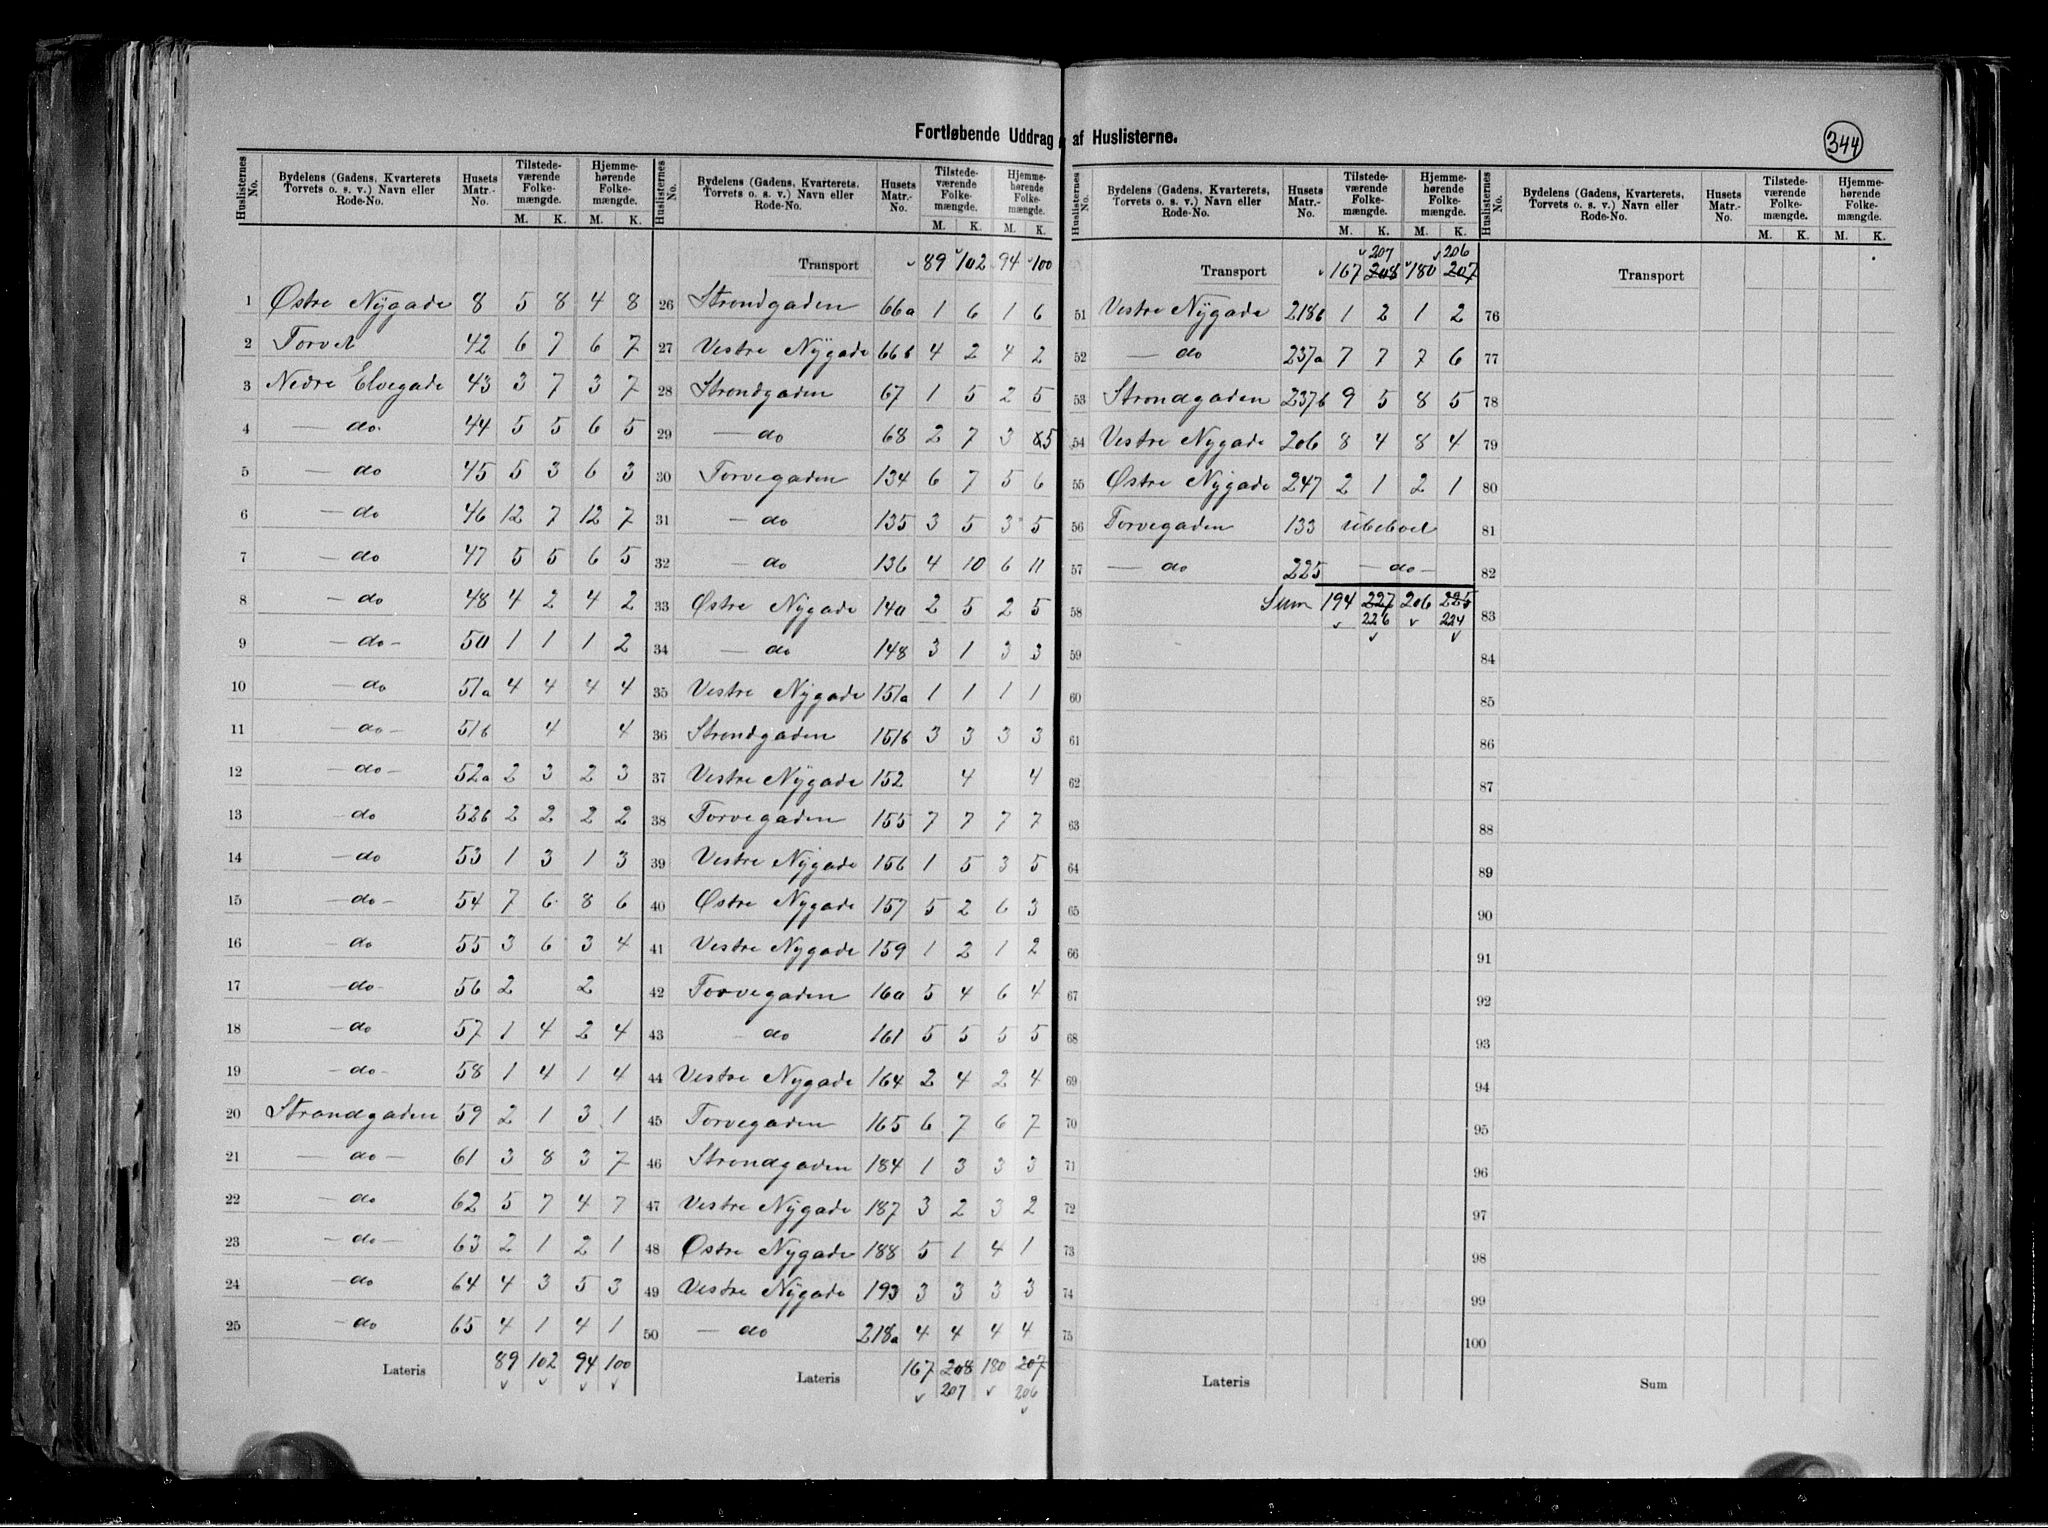 Fortløbende Uddrag af Huslisterne.
344
Huslisternes No. | Bydelens (Gadens, Kvarterets, Torvets o. s. v.) Navn eller Rode-No. | Husets Matr.-No. | Tilstedeværende Folkemængde. M. K. | Hjemmehørende Folkemængde. M. K.
1 Østre Nÿgade 8 5 8 4 8
2 Torvet 42 6 7 6 7
3 Nedre Elvegade 43 3 7 3 7
4 — do. 44 5 5 6 5
5 — do 45 5 3 6 3
6 — do 46 12 7 12 7
7 — do 47 5 5 6 5
8 — do 48 4 2 4 2
9 — do- 50 1 1 1 2
10 — do 51a 4 4 4 4
11 — do- 51b 4 4
12 — do- 52a 2 3 2 3
13 — do 52b 2 2 2 2
14 — do 53 1 3 1 3
15 — do- 54 7 6 8 6
16 — do 55 3 6 3 4
17 — do- 56 2 2
18 — do 57 1 4 2 4
19 — do- 58 1 4 1 4
20 Strandgaden 59 2 1 3 1
21 — do — 61 3 8 3 7
22 — do 62 5 7 4 7
23 — do — 63 2 1 2 1
24 — do 64 4 3 5 3
25 — do 65 4 1 4 1
Lateris 89 102 94 100
Huslisternes No. | Bydelens (Gadens, Kvarterets, Torvets o. s. v.) Navn eller Rode-No. | Husets Matr.-No. | Tilstedeværende Folkemængde. M. K. | Hjemmehørende Folkemængde. M. K.
Transport 89 102 94 100
26 Strandgaden 66a 1 6 1 6
27 Vestre Nÿgade 66b 4 2 4 2
28 Strandgaden 67 1 5 2 5
29 — do 68 2 7 3 5
30 Torvegaden 134 6 7 5 6
31 — do 135 3 5 3 5
32 — do 136 4 10 6 11
33 Østre Nÿgade 140 2 5 2 5
34 — do 148 3 1 3 3
35 Vestre Nÿgade 151a 1 1 1 1
36 Strandgaden 151b 3 3 3 3
37 Vestre Nÿgade 152 4 4
38 Torvegaden 155 7 7 7 7
39 Vestre Nÿgade 156 1 5 3 5
40 Østre Nÿgade 157 5 2 6 3
41 Vestre Nÿgade 159 1 2 1 2
42 Torvegaden 160 5 4 6 4
43 do 161 5 5 5 5
44 Vestre Nÿgade 164 2 4 2 4
45 Torvegaden 165 6 7 6 7
46 Strandgaden 184 1 3 3 3
47 Vestre Nÿgade 187 3 2 3 2
48 Østre Nÿgade 188 5 1 4 1
49 Vestre Nÿgade 193 3 3 3 3
50 — do 218a 4 4 4 4
Lateris 167 208 180 207
207 206
Huslisternes No. | Bydelens (Gadens, Kvarterets, Torvets o. s. v.) Navn eller Rode-No. | Husets Matr.-No. | Tilstedeværende Folkemængde. M. K. | Hjemmehørende Folkemængde. M. K.
207 206
Transport 167 208 180 207
51 Vestre Nÿgade 218b 1 2 1 2
52 — do 237a 7 7 7 6
53 Strandgaden 237b 9 5 8 5
54 Vestre Nygade 206 8 4 8 4
55 Østre Nÿgade 247 2 1 2 1
56 Torvegaden 133 ubeboet
57 — do 225 — do —
58 Sum 194 227 206 225
226 224
59
60
61
62
63
64
65
66
67
68
69
70
71
72
73
74
75
Lateris
Huslisternes No. | Bydelens (Gadens, Kvarterets, Torvets o. s. v.) Navn eller Rode-No. | Husets Matr.-No. | Tilstedeværende Folkemængde. M. K. | Hjemmehørende Folkemængde. M. K.
Transport
76
77
78
79
80
81
82
83
84
85
86
87
88
89
90
91
92
93
94
95
96
97
98
99
100
Sum